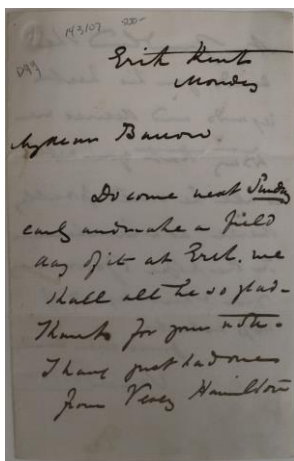 143107 250-
D93
Erith Kent
Monday
My dear Barrow
Do come next Sunday
early and make a field
day of it at Erith. we
shall all be so glad -
Thanks for your note -
I have just had one
from Vesey Hamilton